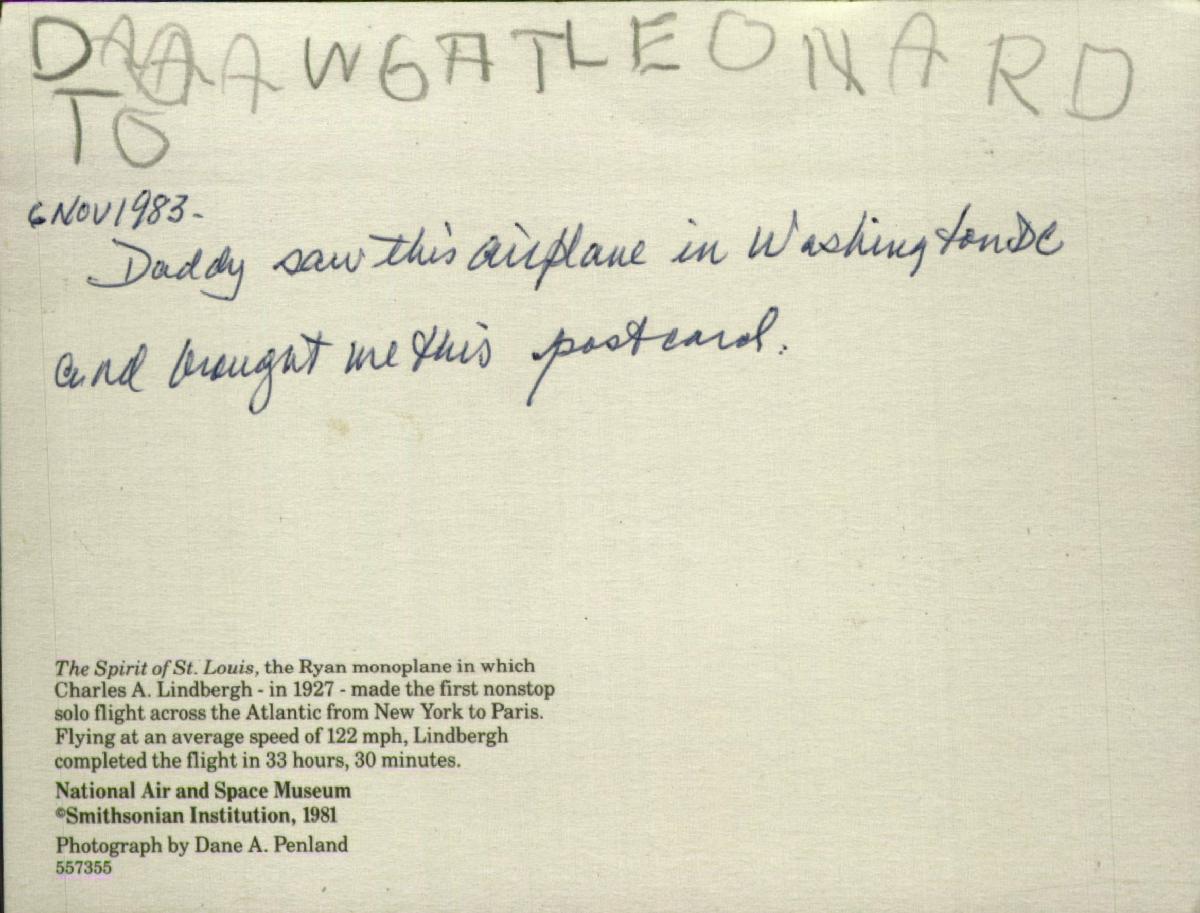 DAAAWGATLEONARD
TO
6 NOV 1983-
Daddy saw this airplane in Washington DC
and brought me this postcard.
The Spirit of St. Louis, the Ryan monoplane in which
Charles A. Lindbergh - in 1927 - made the first nonstop
solo flight across the Atlantic from New York to Paris.
Flying at an average speed of 122 mph, Lindbergh
completed the flight in 33 hours, 30 minutes.
National Air and Space Museum
©Smithsonian Institution, 1981
Photograph by Dane A. Penland
557355